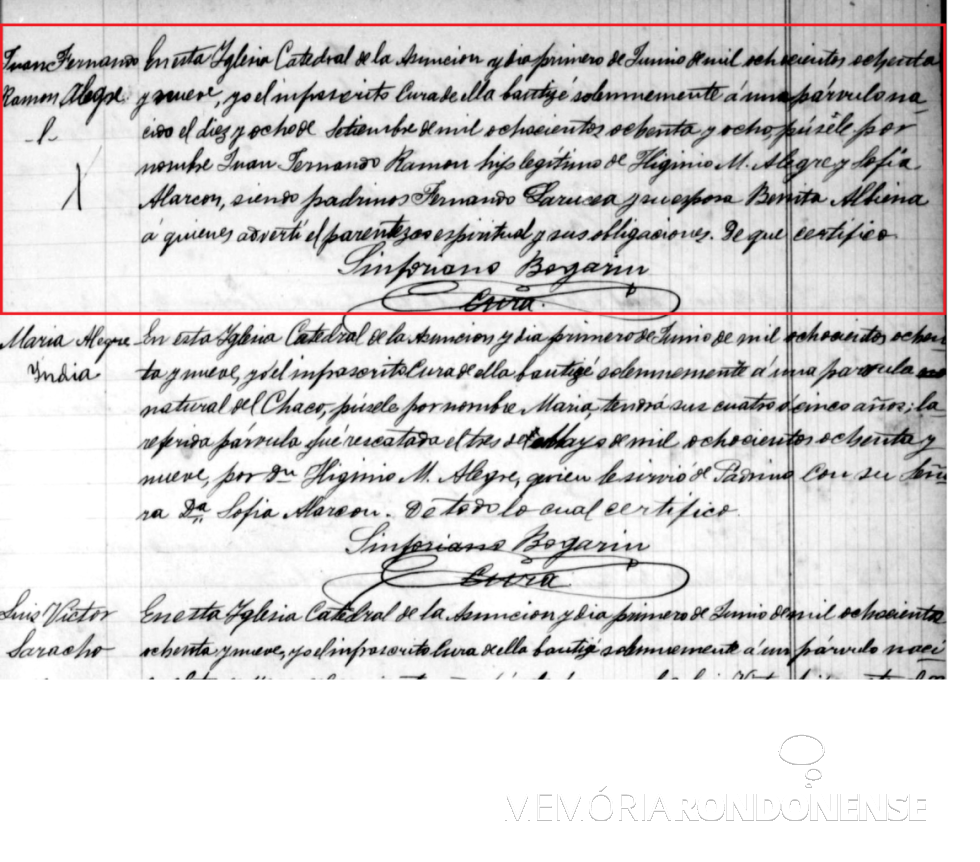 Juan Fernando
Ramon Alegre
l.
En esta Iglesia Catedral de la Asuncion y dia primero de Junio de mil ochocientos ochenta
y nueve, yo el infrascrito Cura de ella bautizé solemnemente á una párvulo na-
cido el diez y ocho de Setiembre de mil ochocientos ochenta y ocho, púsele por
nombre Juan Fernando Ramon hijo legítimo de Higinio M. Alegre y Sofia
Alarcon, siendo padrinos Fernando y su esposa Benita Albiena
á quienes advertí el parentezco espiritual y sus obligaciones. De que certifico
Sinforiano Bogarin
Cura.
Maria Alegre
India
En esta Iglesia Catedral de la Asuncion y dia primero de Junio de mil ochocientos ochen-
ta y nueve, yo el infrascrito Cura de ella bautizé solemnemente á una parvula
natural del Chaco, púsele por nombre Maria, tendrá sus cuatro o cinco años; la
referida párvula fué rescatada el tres de Mayo de mil ochocientos ochenta y
nueve, por dn Higinio M. Alegre, quien le sirvió de Padrino con su Seño-
ra Da. Sofia Alarcon. De todo lo cual certifico.
Sinforiano Bogarin
Cura
Luis Victor
Saracho
En esta Iglesia Catedral de la Asuncion y dia primero de Junio de mil ochocientos
ochenta y nueve, yo el infrascrito Cura de ella bautizé solemnemente á un párvulo naci
MEMÓRIA RONDONENSE